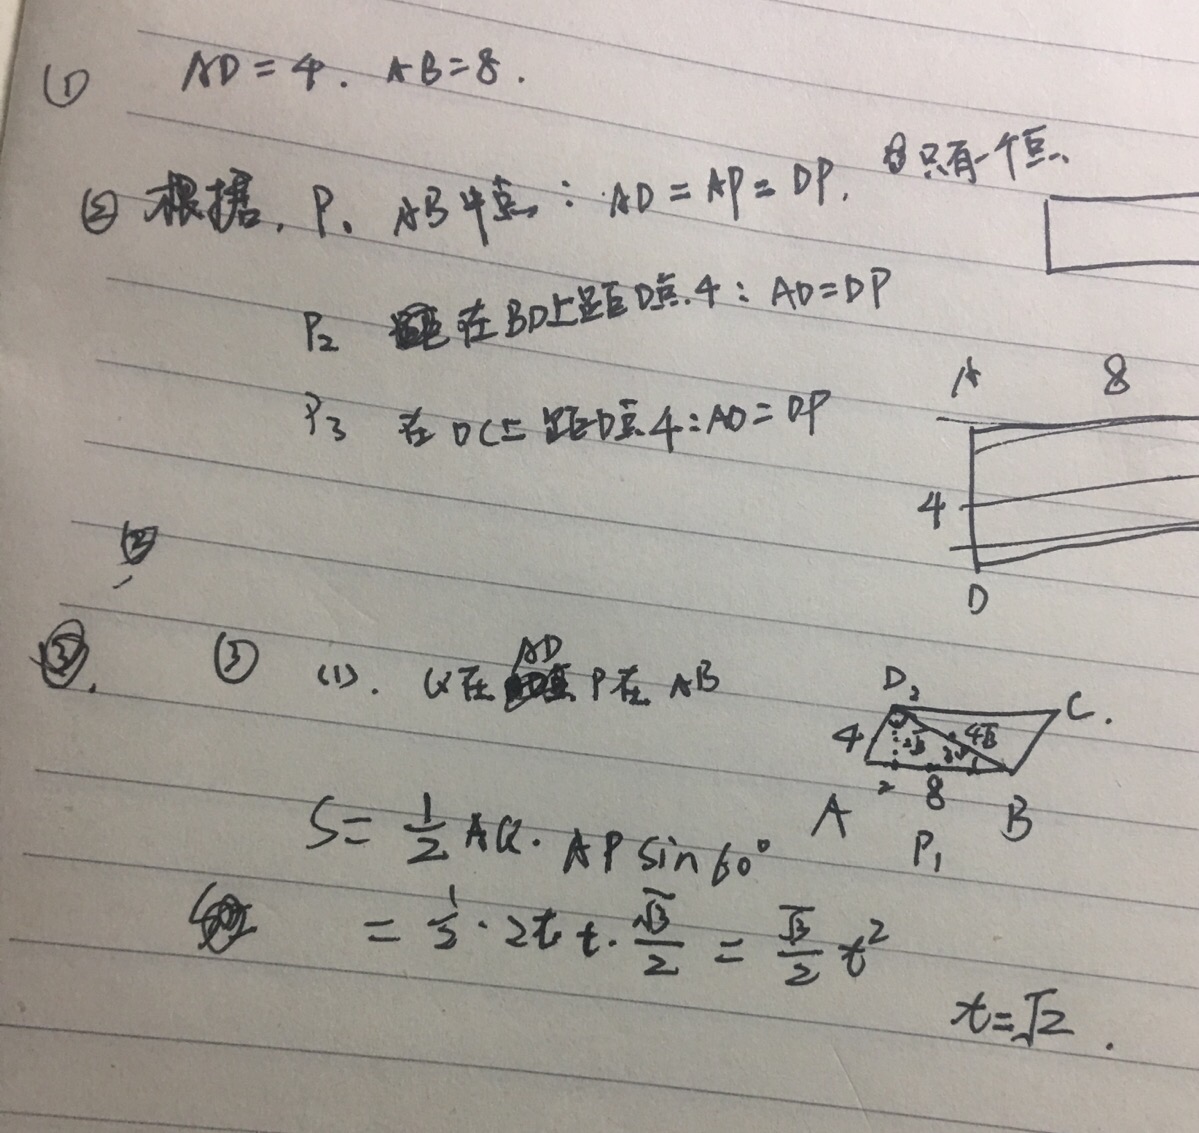 ① AD=4. AB=8.
只有一个点、
② 根据. P、 AB中点: AD=AP=DP.
P₂ 在BD上距D点.4: AD=DP
P₃ 在DC上距D点4:AD=DP
A 8
4
D
③ (1). Q在AD P在AB
D₂ C.
4 2√3 4√3
2 8
A P₁ B
S=½AQ·AP sin60°
=½·2t t·√3/2=√3/2 t²
t=√2.